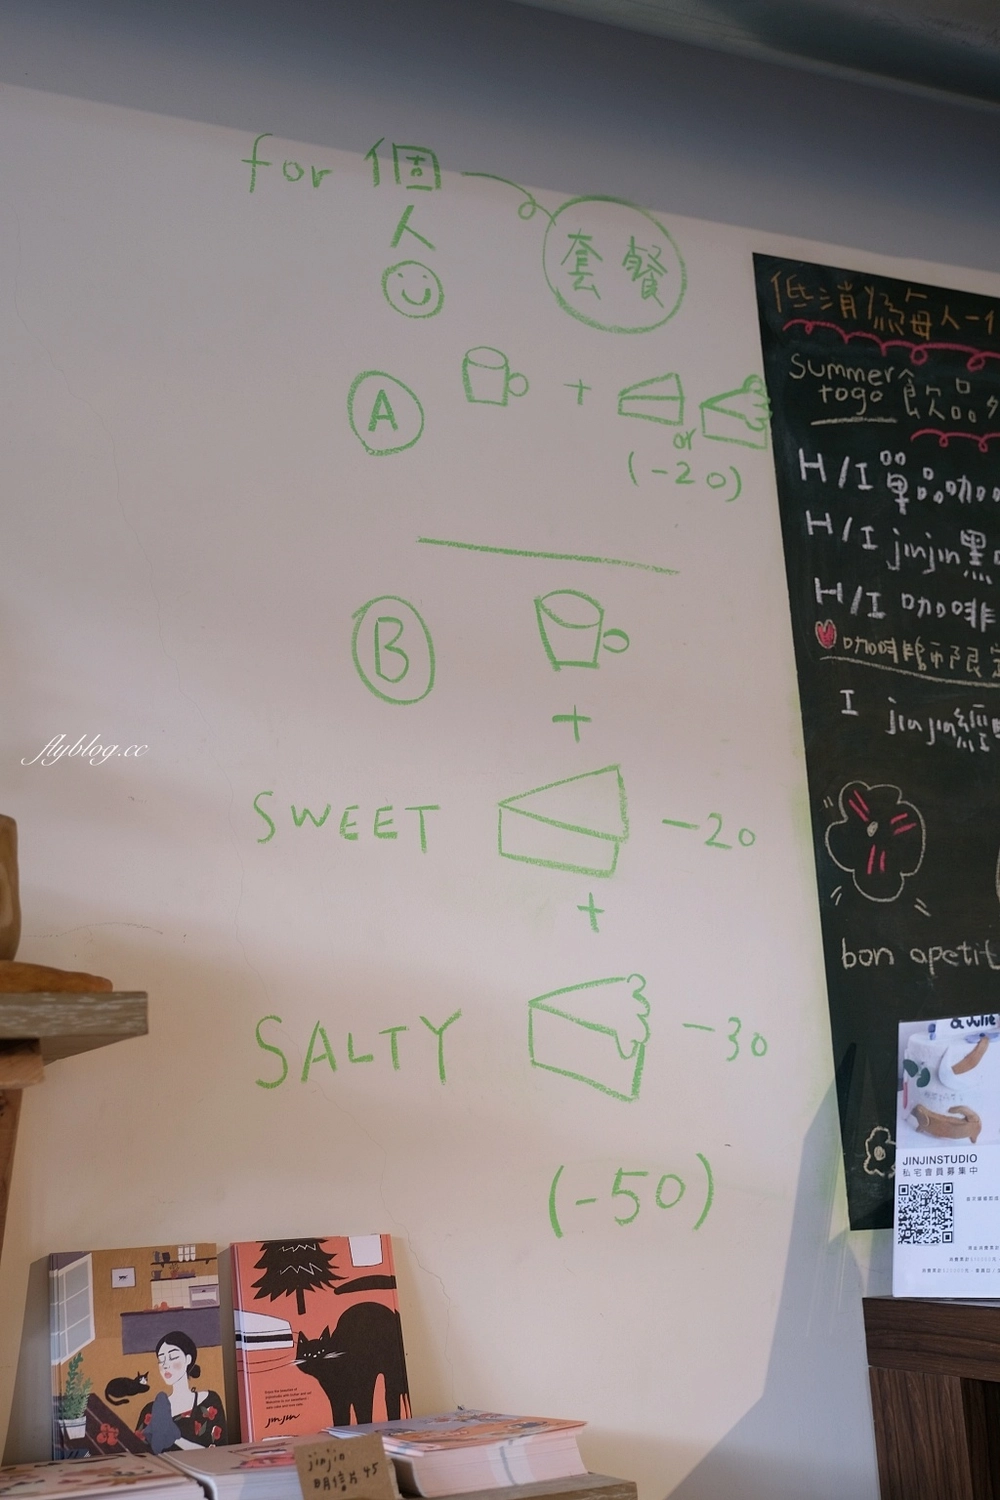 for 個
人
套餐
A
+
or
(-20)
B
+
SWEET
-20
+
SALTY
-30
(-50)
低消為每人一
summer
togo
飲品
H/I 單品咖
H/I jinjin黑
H/I 咖啡
I jinjin經
bon apetit
& Julie
JINJINSTUDIO
私宅會員募集中
jinjin
jinjin
明信片 45
flyblog.cc